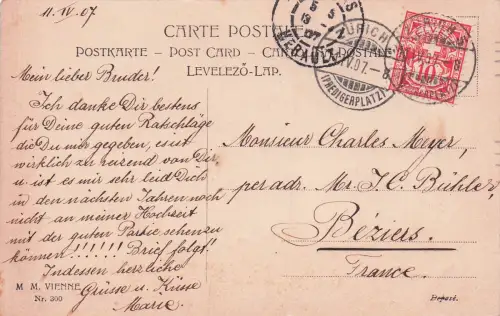 11. IV. 07
CARTE POSTALE
POSTKARTE - POST CARD -
LEVELEZŐ-LAP.
ZÜRICH
IV.07.-8
(PREDIGERPLATZ)
10
Mein lieber Bruder!
Ich danke Dir bestens
für Deine guten Ratschläge
die Du mir gegeben, es ist
wirklich zu reizend von Dir,
u. ist es mir sehr leid Dich
in den nächsten Jahren noch
nicht an meiner Hochzeit
mit der guten Partie sehen zu
können!!!!!! Brief folgt!
Indessen herzliche
Grüsse u. Küsse
Marie.
Monsieur Charles Meyer,
per adr. Mr. J. C. Bühler,
Béziers.
France.
M. M. VIENNE
Nr. 300
Déposé.